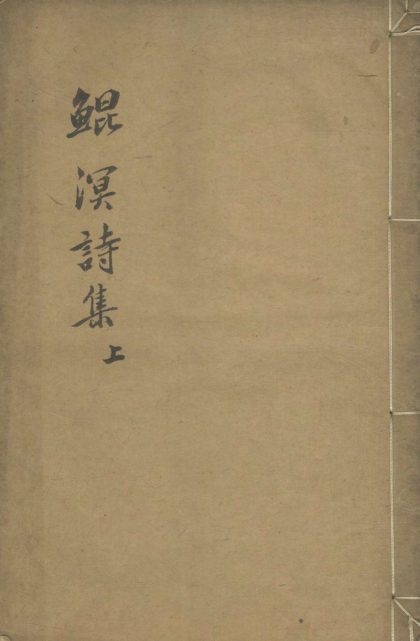 鯤溟詩集上